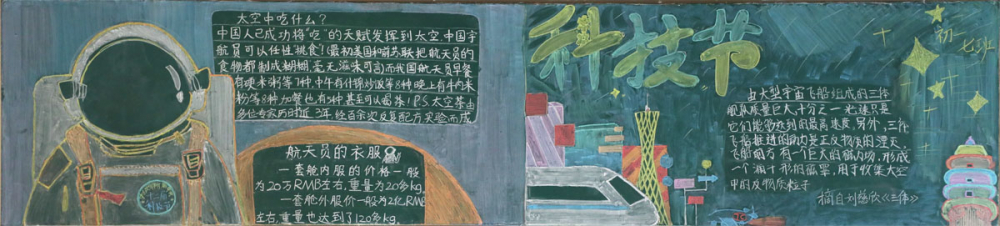 太空中吃什么?
中国人已成功将"吃"的天赋发挥到太空,中国宇
航员可以任性"挑食"!最初美国和前苏联把航天员的
食物都制成糊糊,毫无滋味可言,而我国航天员早餐
有粳米粥等7种,中午有什锦炒饭等8种,晚上有牛肉米
粉等8种,加餐也有5种,甚至可以
航天员的衣服
一套舱内服的价格一般
为20万RMB左右,重量为20多kg,
一套舱外服价一般为2亿RMB
左右,重量也达到了120多kg.
科技节
初一七班
由大型宇宙飞船组成的三体
舰队质量巨大,十分之一光速只是
它们能够达到的最高速度,另外,三体
飞船推进的动力是正反物质的湮灭,
飞船前方有一个巨大的磁力场,形成
一个漏斗形的磁罩,用于收集太空
中的反物质粒子
摘自刘慈欣《三体》